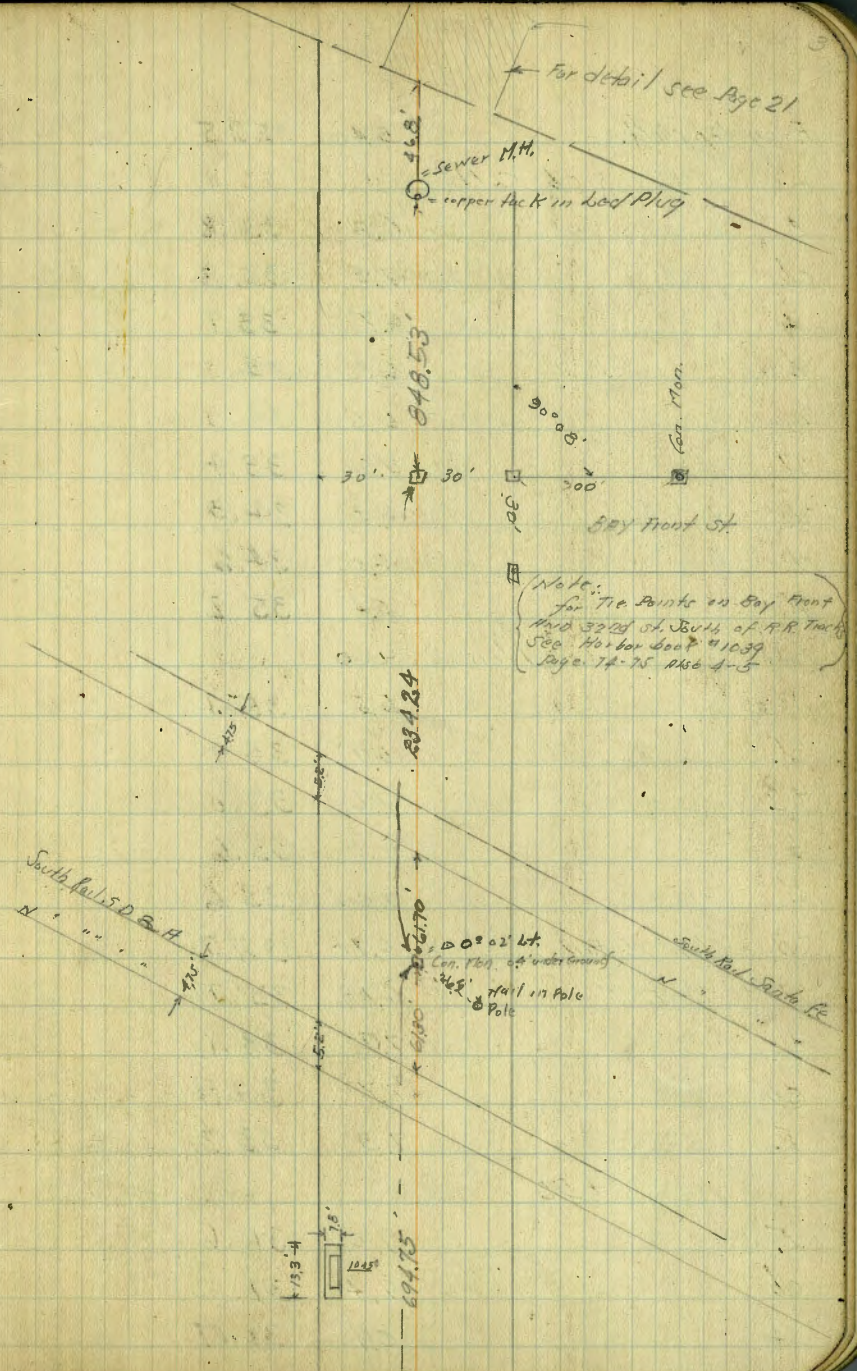 3
For detail see Page 21
46.8'
= Sewer M.H.
= copper tack in Lead Plug
848.53'
90° 00'
Con. Mon.
30'
30'
300'
30'
Bay Front St.
Note:
for Tie Points on Bay Front
And 32nd St. South of R.R. Tracks
See Harbor book #1039
Page 74-75 Also 4-5
234.24
4.75'
5.2'
South Rail S D & A
N " " " "
4.75'
61.70'
Δ 0° 02' Lt.
Con. Mon. 0.4' underground
Nail in Pole
Pole
South Rail Santa Fe
N " " "
61.30'
5.2'
7.8'
13.3'
694.75'